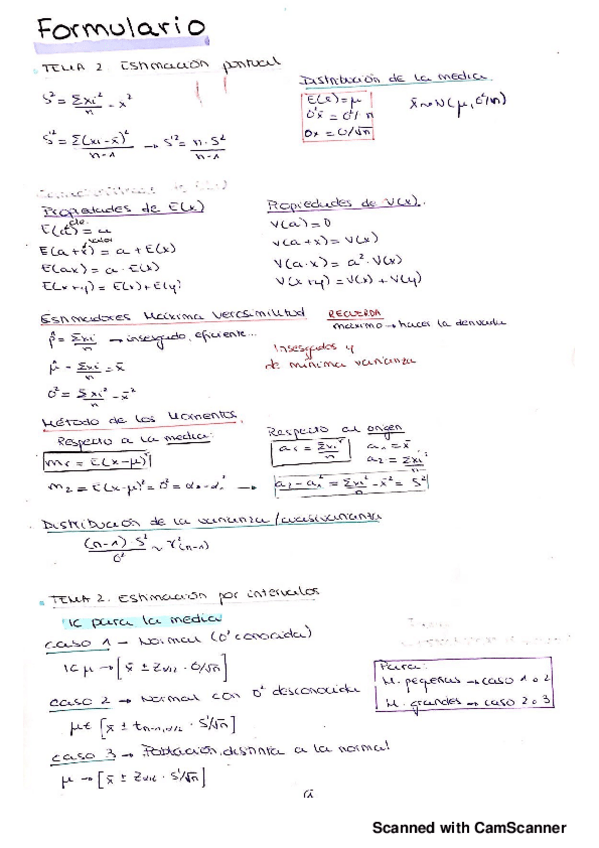 Formulario
TEMA 2. Estimación puntual
S² = Σxi²/n - x̄²
S'² = Σ(xi - x̄)²/n-1 → S'² = n·S²/n-1
Distribución de la media.
E(x̄) = μ
σ²x̄ = σ²/n
σx̄ = σ/√n
x̄ ~ N(μ, σ²/n)
Propiedades de E(x)
cte.
E(a) = a
valor
E(a+x) = a + E(x)
E(ax) = a · E(x)
E(x+y) = E(x) + E(y)
Propiedades de V(x).
V(a) = 0
V(a+x) = V(x)
V(a·x) = a² · V(x)
V(x+y) = V(x) + V(y)
Estimadores Máxima verosimilitud
RECUERDA
máximo → hacer la derivada
p̂ = Σxi/n → insesgado, eficiente...
μ̂ - Σxi/n = x̄
σ² = Σxi²/n - x̄²
Insesgados y
de mínima varianza
Método de los Momentos.
Respecto a la media:
mr = E(x-μ)^r
m2 = E(x-μ)² = σ² = α2 - α1² →
Respecto al origen
ar = Σxi^r/n
a1 = x̄
a2 = Σxi²/n
a2 - a1² = Σxi²/n - x̄² = S²
Distribución de la varianza/cuasivarianza
(n-1)·S'²/σ² ~ χ²(n-1)
TEMA 2. Estimación por intervalos
IC para la media
caso 1 - Normal (σ² conocida)
IC μ → [x̄ ± Zα/2 · σ/√n]
caso 2 → Normal con σ² desconocida
μ ∈ [x̄ ± tn-1,α/2 · S'/√n]
caso 3 → Población distinta a la normal
μ → [x̄ ± Zα/2 · S'/√n]
Para:
M. pequeñas → caso 1 o 2
M. grandes → caso 2 o 3
Scanned with CamScanner